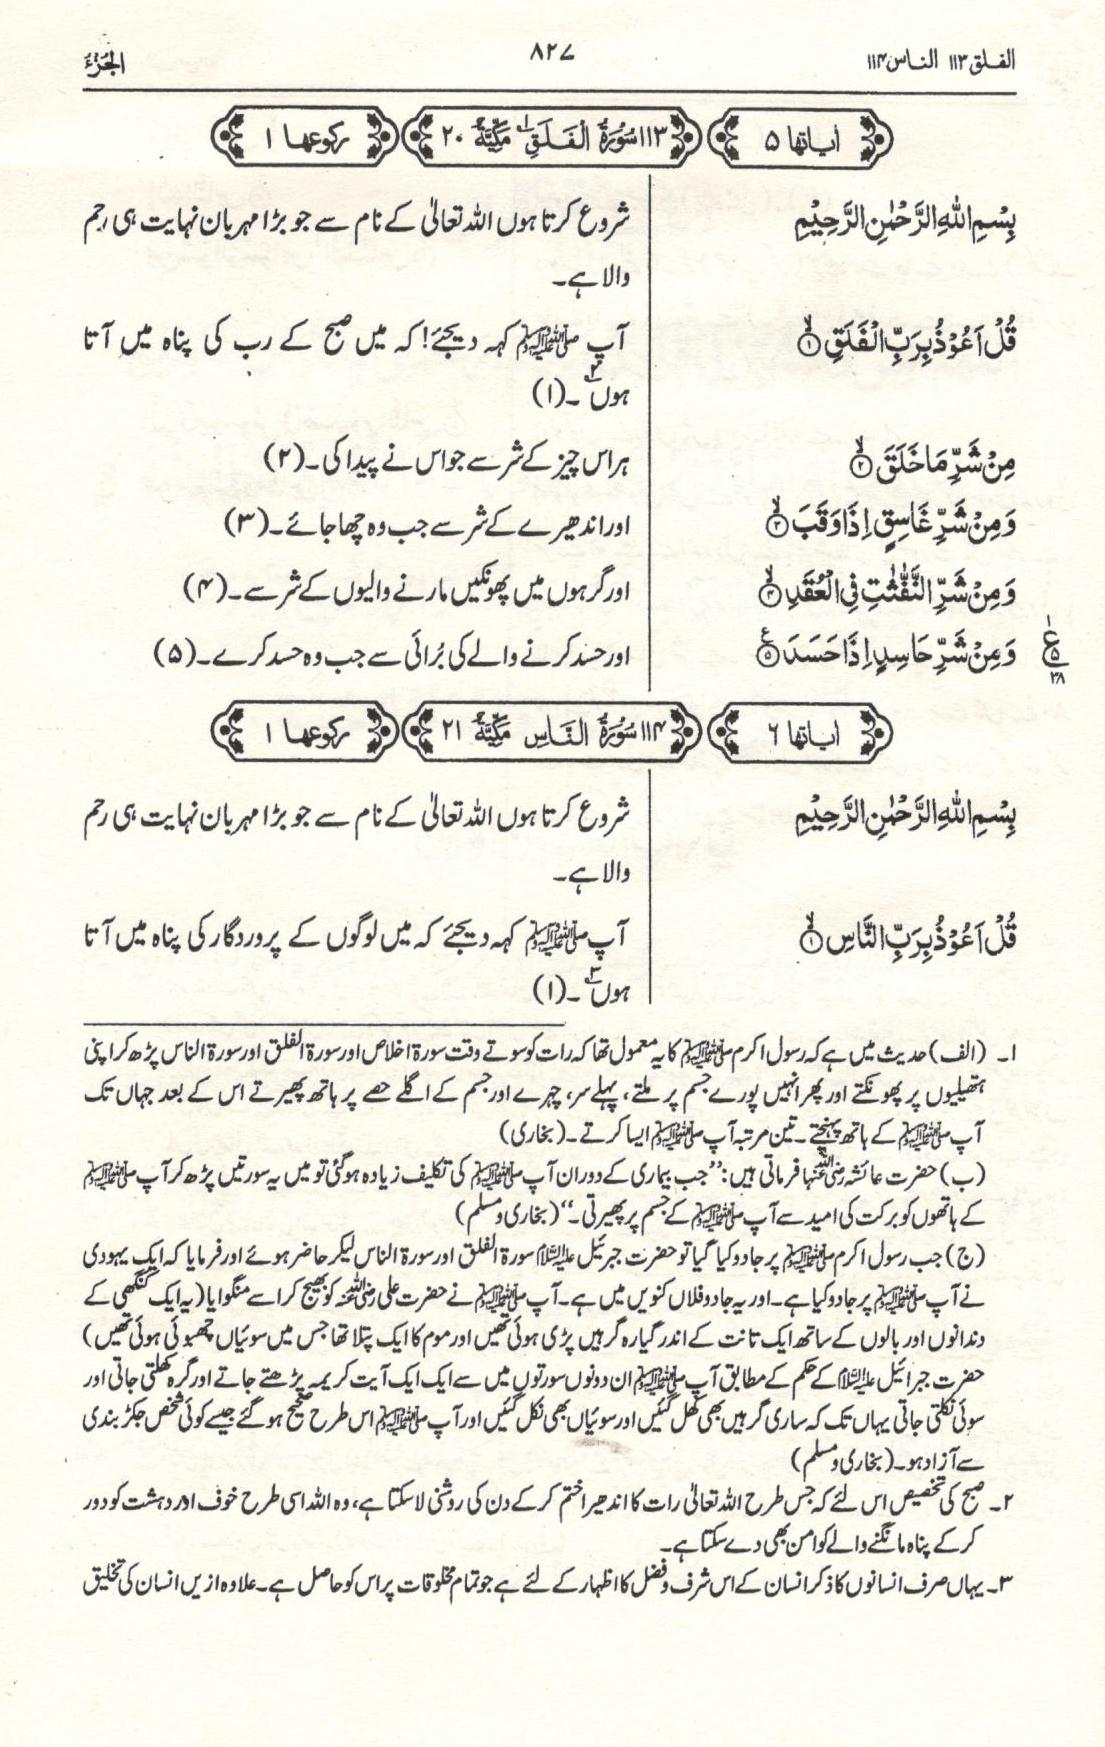 الفلق ١١٣ الناس ١١٤
٨٢٧
الجزء
اٰیاتها ٥
١١٣ سُوۡرَةُ الۡفَلَقِ مَكِّيَّةٌ ٢٠
رکوعها ١
بِسۡمِ اللّٰهِ الرَّحۡمٰنِ الرَّحِيۡمِ
شروع کرتا ہوں اللہ تعالیٰ کے نام سے جو بڑا مہربان نہایت ہی رحم
والا ہے۔
قُلۡ اَعُوۡذُ بِرَبِّ الۡفَلَقِۙ ۱
آپ ﷺ کہہ دیجئے! کہ میں صبح کے رب کی پناہ میں آتا
ہوں۲۔ (۱)
مِنۡ شَرِّ مَا خَلَقَۙ ۲
ہر اس چیز کے شر سے جو اس نے پیدا کی۔ (۲)
وَمِنۡ شَرِّ غَاسِقٍ اِذَا وَقَبَۙ ۳
اور اندھیرے کے شر سے جب وہ چھا جائے۔ (۳)
وَمِنۡ شَرِّ النَّفّٰثٰتِ فِى الۡعُقَدِۙ ۴
اور گرہوں میں پھونکیں مارنے والیوں کے شر سے۔ (۴)
وَمِنۡ شَرِّ حَاسِدٍ اِذَا حَسَدَ ۵ ع
اور حسد کرنے والے کی بُرائی سے جب وہ حسد کرے۔ (۵)
۱ ع ۵ ۳۸
اٰیاتها ٦
١١٤ سُوۡرَةُ النَّاسِ مَكِّيَّةٌ ٢١
رکوعها ١
بِسۡمِ اللّٰهِ الرَّحۡمٰنِ الرَّحِيۡمِ
شروع کرتا ہوں اللہ تعالیٰ کے نام سے جو بڑا مہربان نہایت ہی رحم
والا ہے۔
قُلۡ اَعُوۡذُ بِرَبِّ النَّاسِۙ ۱
آپ ﷺ کہہ دیجئے کہ میں لوگوں کے پروردگار کی پناہ میں آتا
ہوں۳۔ (۱)
۱۔ (الف) حدیث میں ہے کہ رسول اکرم ﷺ کا یہ معمول تھا کہ رات کو سوتے وقت سورۃ اخلاص اور سورۃ الفلق اور سورۃ الناس پڑھ کر اپنی
ہتھیلیوں پر پھونکتے اور پھر انہیں پورے جسم پر ملتے، پہلے سر، چہرے اور جسم کے اگلے حصے پر ہاتھ پھیرتے اس کے بعد جہاں تک
آپ ﷺ کے ہاتھ پہنچتے۔ تین مرتبہ آپ ﷺ ایسا کرتے۔ (بخاری)
(ب) حضرت عائشہ رضی اللہ عنہا فرماتی ہیں: ”جب بیماری کے دوران آپ ﷺ کی تکلیف زیادہ ہو گئی تو میں یہ سورتیں پڑھ کر آپ ﷺ
کے ہاتھوں کو برکت کی امید سے آپ ﷺ کے جسم پر پھیرتی۔“ (بخاری و مسلم)
(ج) جب رسول اکرم ﷺ پر جادو کیا گیا تو حضرت جبرئیل علیہ السلام سورۃ الفلق اور سورۃ الناس لیکر حاضر ہوئے اور فرمایا کہ ایک یہودی
نے آپ ﷺ پر جادو کیا ہے۔ اور یہ جادو فلاں کنویں میں ہے۔ آپ ﷺ نے حضرت علی رضی اللہ عنہ کو بھیج کر اسے منگوایا (یہ ایک کنگھی کے
دندانوں اور بالوں کے ساتھ ایک تانت کے اندر گیارہ گرہیں پڑی ہوئی تھیں اور موم کا ایک پتلا تھا جس میں سوئیاں چھبوئی ہوئی تھیں)
حضرت جبرائیل علیہ السلام کے حکم کے مطابق آپ ﷺ ان دونوں سورتوں میں سے ایک ایک آیت کریمہ پڑھتے جاتے اور گرہ کھلتی جاتی اور
سوئی نکلتی جاتی یہاں تک کہ ساری گرہیں بھی کھل گئیں اور سوئیاں بھی نکل گئیں اور آپ ﷺ اس طرح صحیح ہو گئے جیسے کوئی شخص جکڑ بندی
سے آزاد ہو۔ (بخاری و مسلم)
۲۔ صبح کی تخصیص اس لئے کہ جس طرح اللہ تعالیٰ رات کا اندھیرا ختم کر کے دن کی روشنی لا سکتا ہے، وہ اللہ اسی طرح خوف اور دہشت کو دور
کر کے پناہ مانگنے والے کو امن بھی دے سکتا ہے۔
۳۔ یہاں صرف انسانوں کا ذکر انسان کے اس شرف و فضل کا اظہار کے لئے ہے جو تمام مخلوقات پر اس کو حاصل ہے۔ علاوہ ازیں انسان کی تخلیق